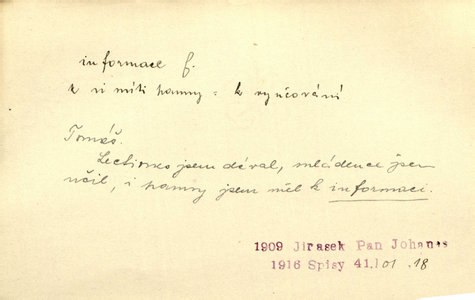 informace f.
k ní míti panny = k vyučování
Tomáš.
Lectiones jsem dával, mládence jsem
učil, i panny jsem měl k informaci.
1909 Jirasek Pan Johanes
1916 Spisy 41.101 .18